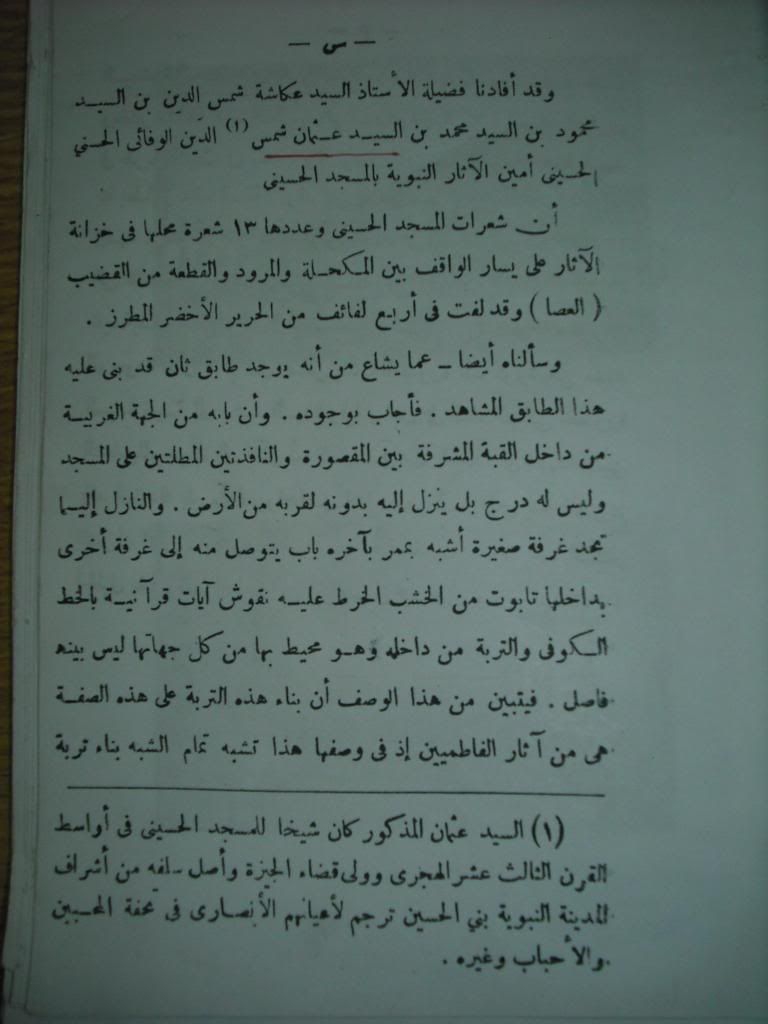 — س —
وقد أفادنا فضيلة الأستاذ السيد عكاشة شمس الدين بن السيد
محمود بن السيد محمد بن السيد عثمان شمس (١) الدين الوفائى الحسنى
الحسينى أمين الآثار النبوية بالمسجد الحسينى
أن شعرات المسجد الحسينى وعددها ١٣ شعرة محلها فى خزانة
الآثار على يسار الواقف بين المكحلة والمرود والقطعة من القضيب
( العصا ) وقد لفت فى أربع لفائف من الحرير الأخضر المطرز .
وسألناه أيضا ــ عما يشاع من أنه يوجد طابق ثان قد بنى عليه
هذا الطابق المشاهد . فأجاب بوجوده . وأن بابه من الجهة الغربية
من داخل القبة المشرفة بين المقصورة والنافذتين المطلتين على المسجد
وليس له درج بل ينزل إليه بدونه لقربه من الأرض . والنازل إليها
تجد غرفة صغيرة أشبه بممر بآخره باب يتوصل منه إلى غرفة أخرى
بداخلها تابوت من الخشب الخرط عليه نقوش آيات قرآنية بالخط
الكوفى والتربة من داخله وهو محيط بها من كل جهاتها ليس بينه
فاصل . فيتبين من هذا الوصف أن بناء هذه التربة على هذه الصفة
هى من آثار الفاطميين إذ فى وصفها هذا تشبه تمام الشبه بناء تربة
(١) السيد عثمان المذكور كان شيخا للمسجد الحسينى فى أواسط
القرن الثالث عشر الهجرى وولى قضاء الجيزة وأصل سلفه من أشراف
المدينة النبوية بني الحسين ترجم لأعيانهم الأنصارى فى تحفة المحبين
والأحباب وغيره .